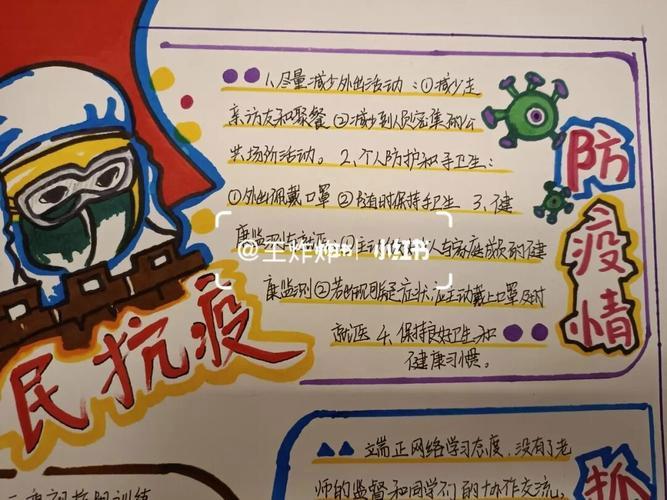 1、尽量减少外出活动：①减少走
亲访友和聚餐②减少到人员密集的公
共场所活动。2、个人防护和手卫生：
①外出佩戴口罩②随时保持手卫生 3、健
康监测与就医①主动做好个人与家庭成员的健
康监测②若出现可疑症状，应主动戴上口罩及时
就医 4、保持良好卫生和
健康习惯。
防疫情
@王炸炸 小红书
民抗疫
端正网络学习态度，没有了老
师的监督和同学们的协作交流，
抓